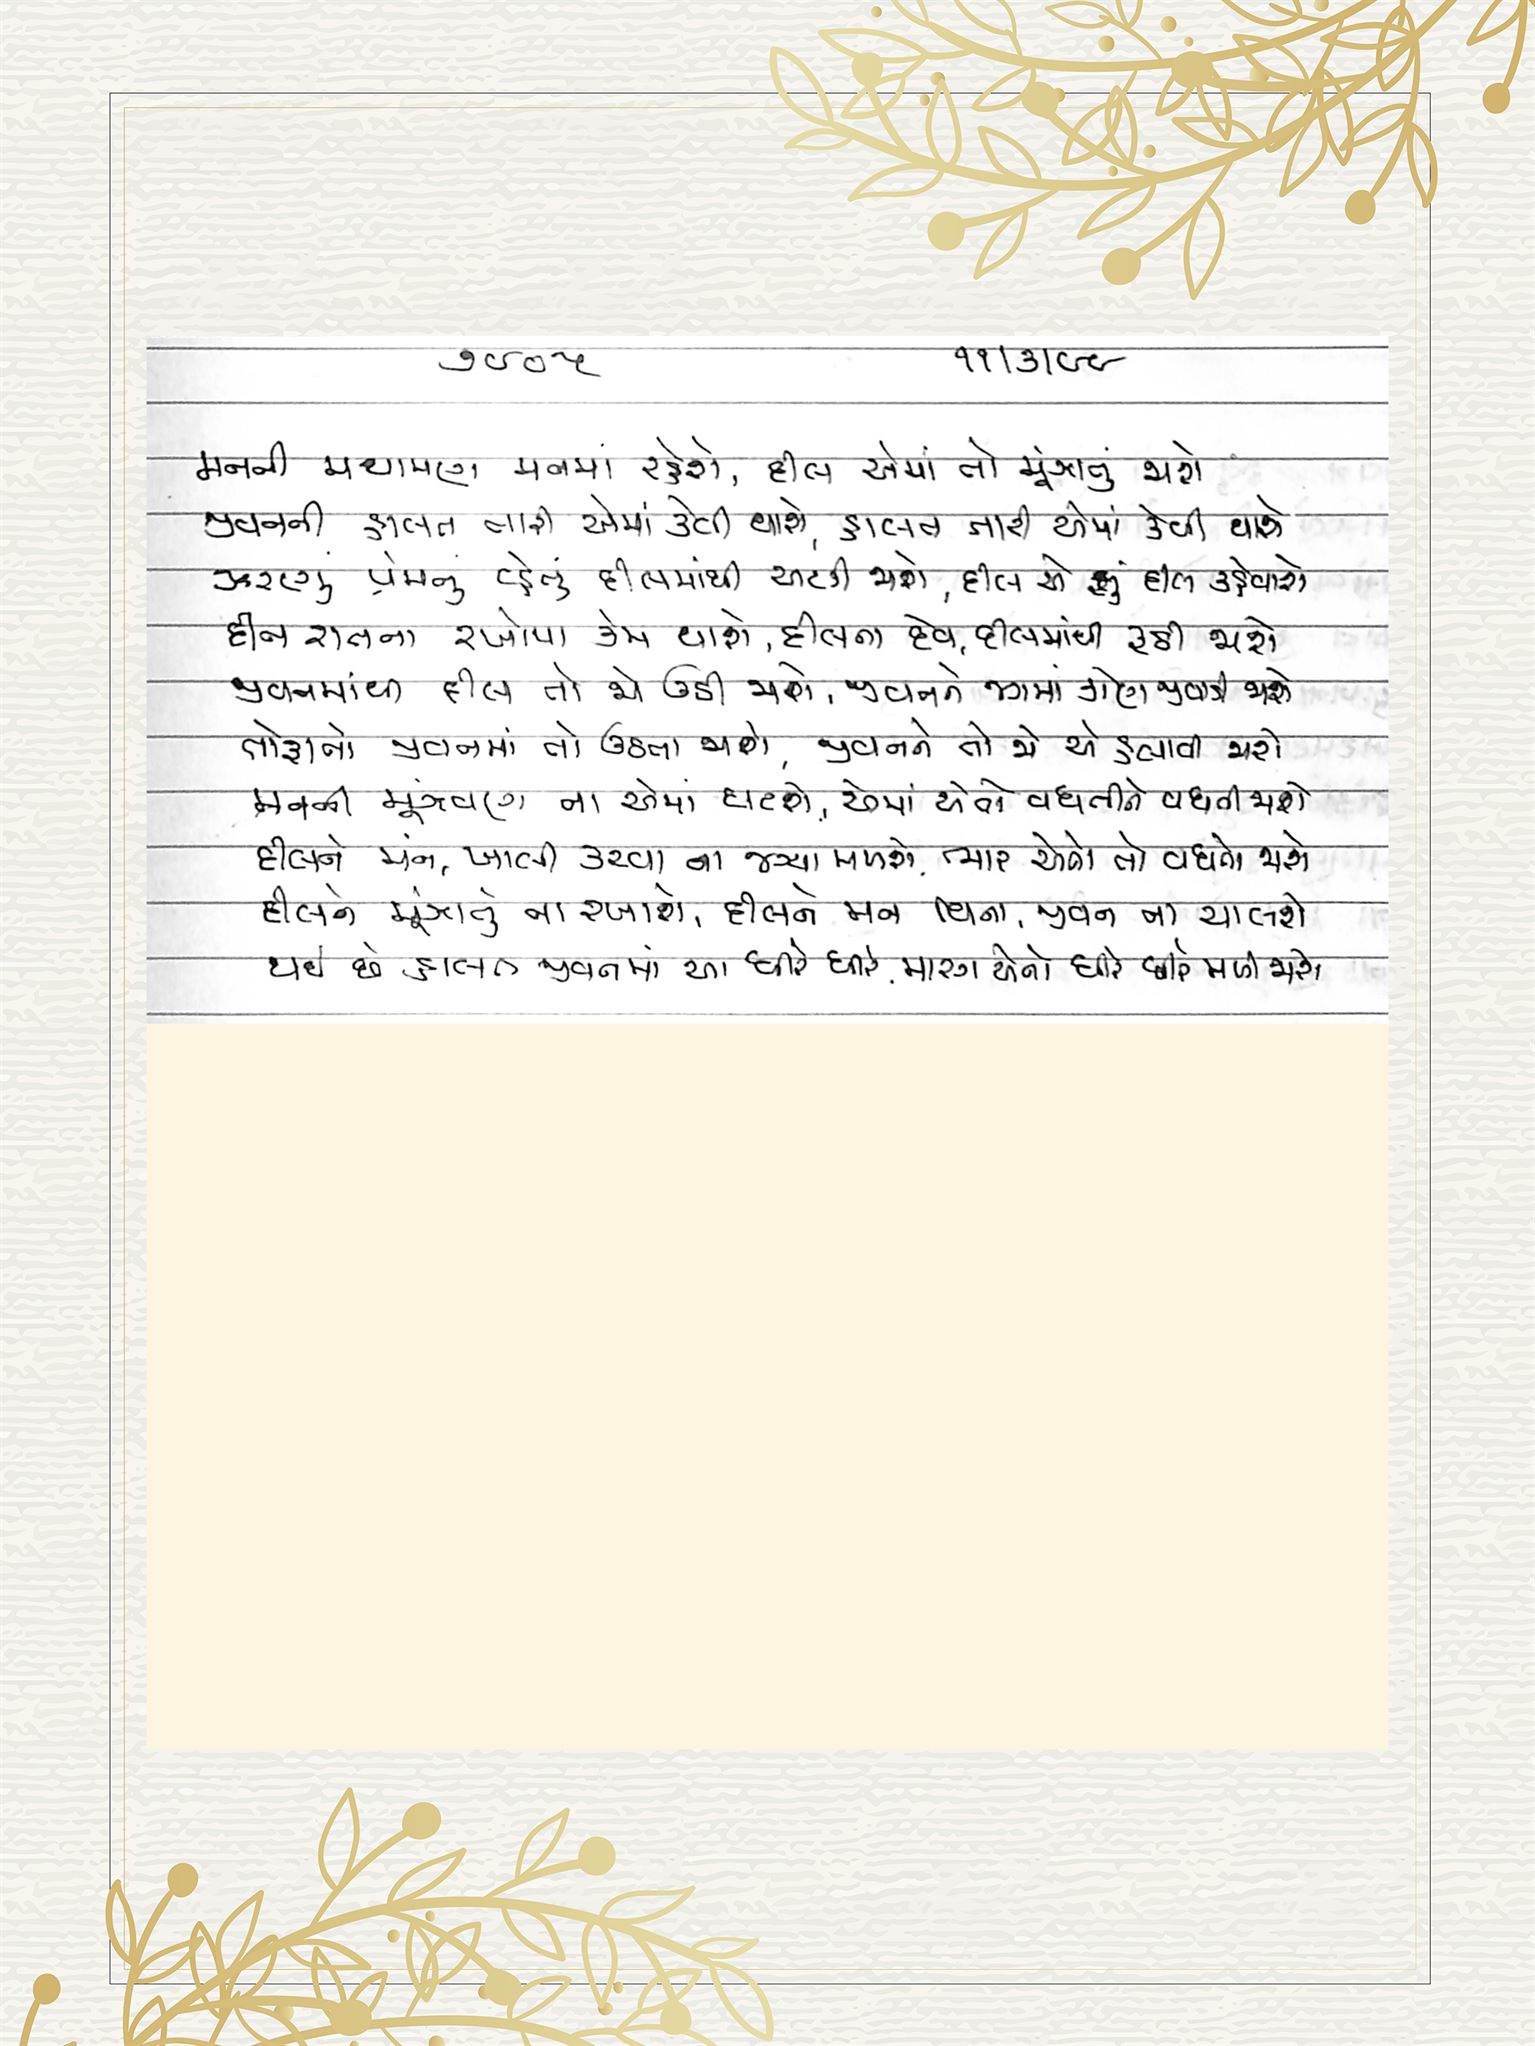 ૭૯૦૫ ૧૧/૩/૯૯
મનની મથામણ મનમાં રહેશે, દીલ એમાં તો મૂંઝાતું જાશે
જીવનની હાલત તારી એમાં કેવી થાશે, હાલત તારી એમાં કેવી થાશે
ઝરણું પ્રેમનું વ્હેતું દીલમાંથી અટકી જાશે, દીલ એ શું દીલ કહેવાશે
દીન રાતના રખોપા કેમ થાશે, દીલના દેવ, દીલમાંથી રૂઠી જાશે
જીવનમાંથી દીલ તો જો ઉડી જાશે, જીવનને જગમાં કોણ જીવાડી જાશે
તોફાનો જીવનમાં તો ઉઠતા જાશે, જીવનને તો જો એ હલાવી જાશે
મનની મૂંઝવણ ના એમાં ઘટશે, એમાં એતો વધતીને વધતી જાશે
દીલને મન, ખાલી કરવા ના જગ્યા મળશે, ભાર એનો તો વધતો જાશે
દીલને મૂંઝાતું ના રખાશે, દીલને મન વિના, જીવન ના ચાલશે
થઈ છે હાલત જીવનમાં આ ધીરે ધીરે, મારગ એનો ધીરે ધીરે મળી જાશે